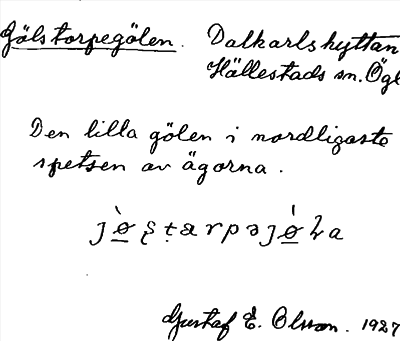 Gölstorpegölen. Dalkarlshyttan
Hällestads sn. Ögl
Den lilla gölen i nordligaste
spetsen av ägorna.
Gustaf E. Olsson. 1927